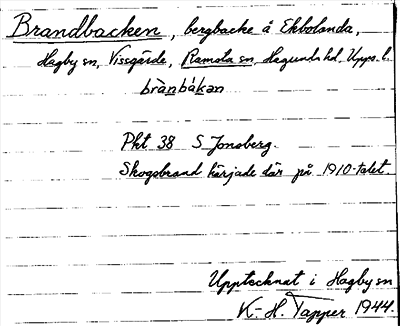 Brandbacken, bergbacke å Ekbolanda,
Hagby sn, Vissgärde, Ramsta sn, Hagunda hd, Upps. l.
brànbákan
Pkt 38 S Jonsberg.
Skogsbrand härjade där på 1910-talet.
Upptecknat i Hagby sn
K.-H. Tapper 1944.